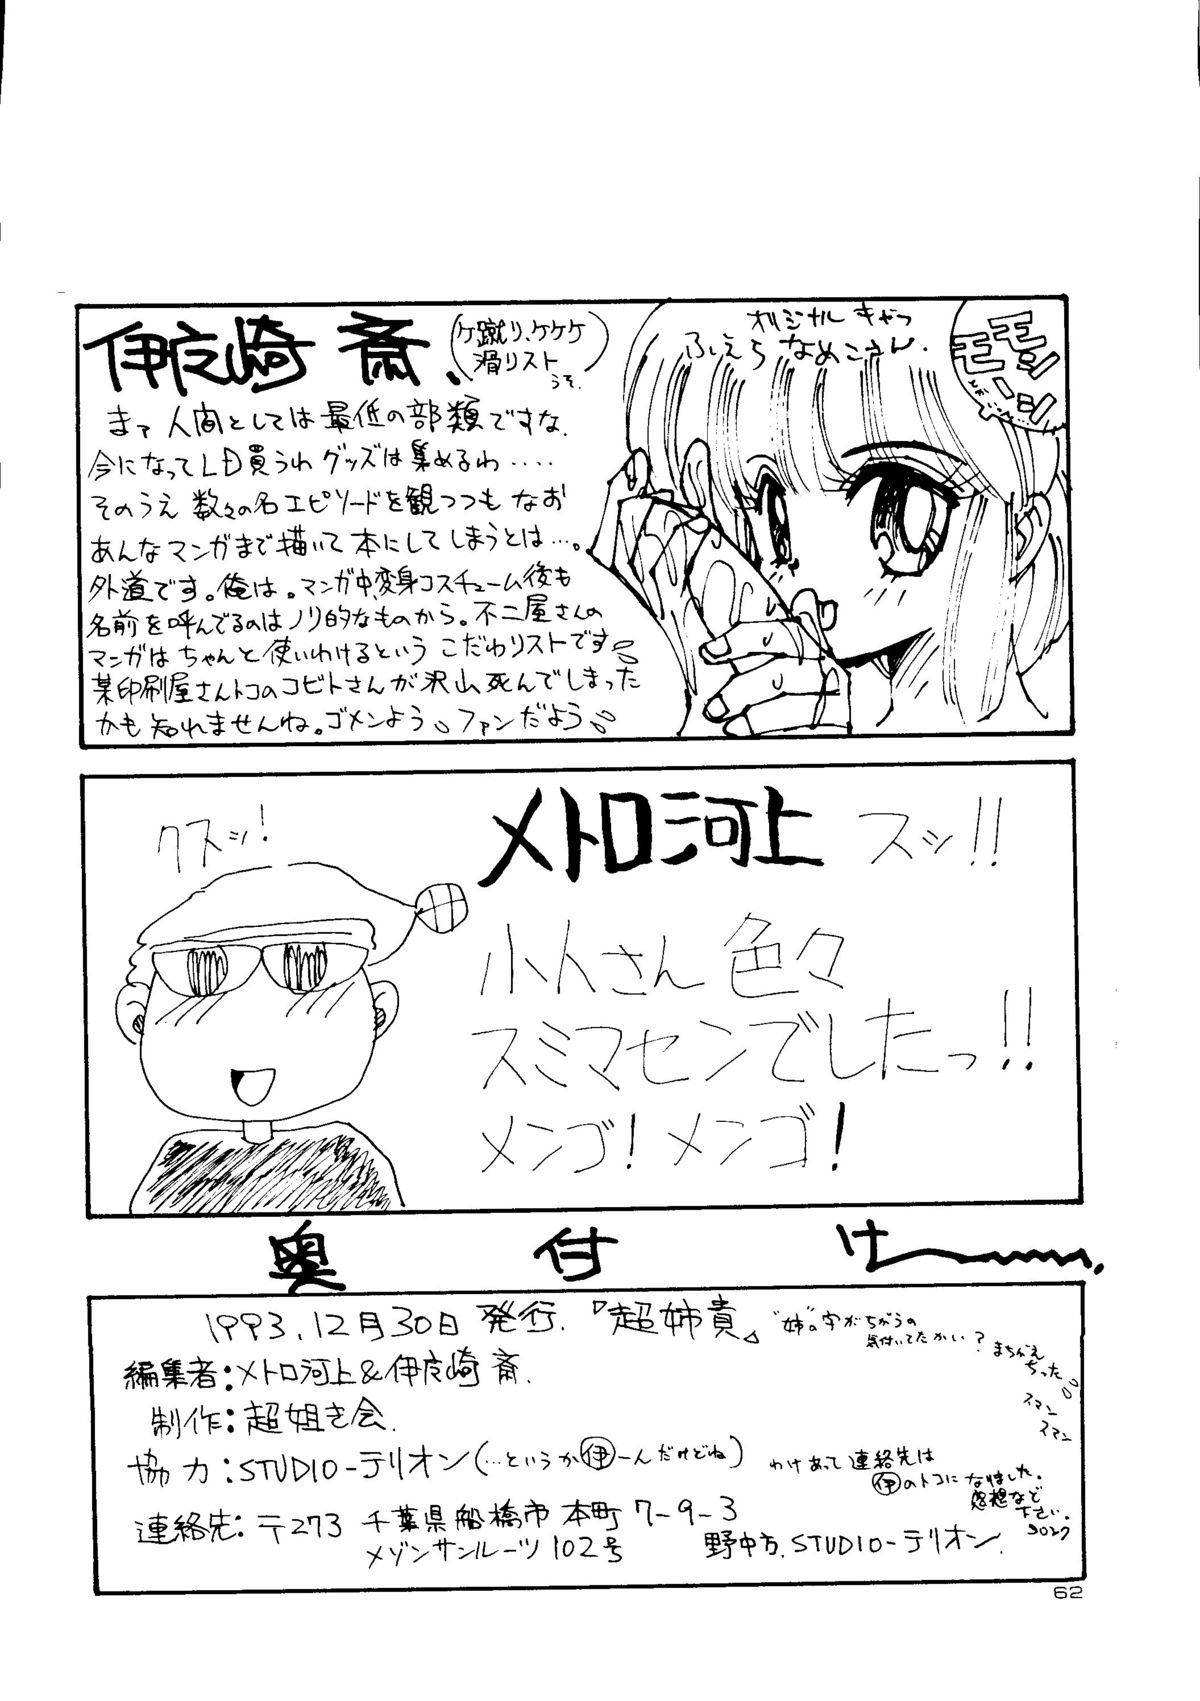 伊良崎 斎.
(ケ蹴り、ケケケ
滑リスト
うそ.)
オリジナル きゃっ
ふえら なめこさん.
モモンモーン
まァ 人間としては最低の部類ですな.
今になってLD買うわ グッズは集めるわ‥‥
そのうえ 数々の名エピソードを観つつも なお
あんなマンガまで描いて 本にしてしまうとは…。
外道です。俺は。マンガ中、変身コスチューム後も
名前を呼んでるのはノリ的なものから。不二屋さんの
マンガは ちゃんと使いわけるという こだわリストです
某印刷屋さんトコのコビトさんが沢山死んでしまった
かも知れませんね。ゴメンよう ファンだよう
クスッ!
メトロ河上 スッ!!
小人さん 色々
スミマセンでしたっ!!
メンゴ! メンゴ!
奥付け
1993.12月30日 発行.『超姉貴』
"姉"の字がちがうの
気付いてたかい?
まちがえ
ちった
スマン
スマン
編集者:メトロ河上&伊良崎 斎.
制作:超姐き会.
協力:STUDIO-テリオン(…というか㋑一んだけどね)
わけあって連絡先は
伊のトコになりました.
感想など
下さい.
ヨロシク
連絡先:〒273 千葉県船橋市 本町 7-9-3
メゾンサンルーツ 102号 野中方.STUDIO-テリオン.
62